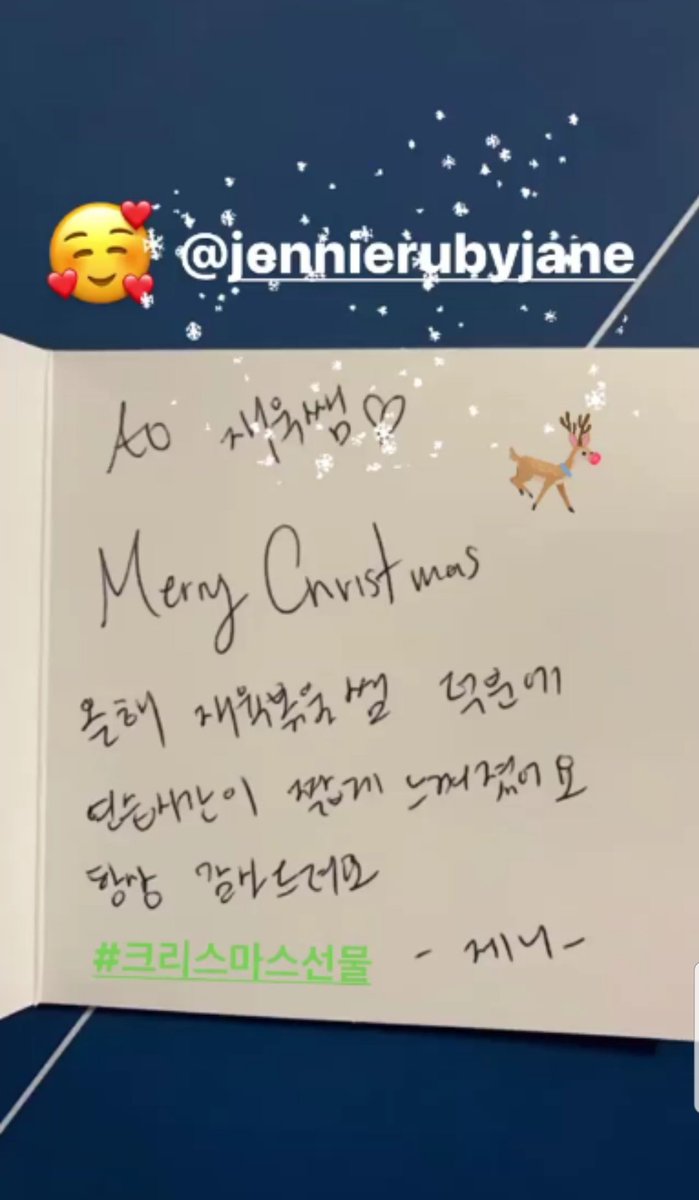 @jennierubyjane
to 재욱쌤♡
Merry Christmas
올해 재육볶음쌤 덕분에
연습시간이 짧게 느껴졌어요
항상 감사드려요
- 제니 -
#크리스마스선물